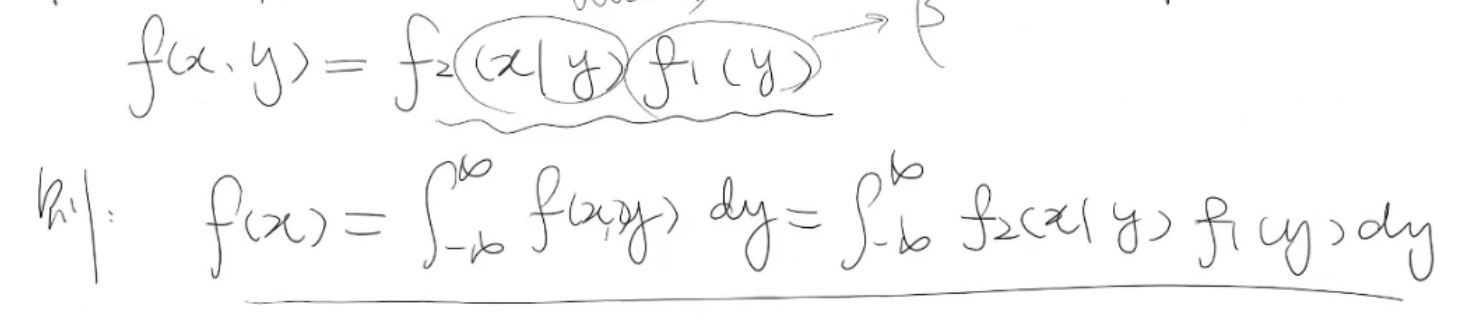 f(x, y) = f₂(x|y) f₁(y) → β
则: f(x) = ∫_{-∞}^{∞} f(x,y) dy = ∫_{-∞}^{∞} f₂(x|y) f₁(y) dy